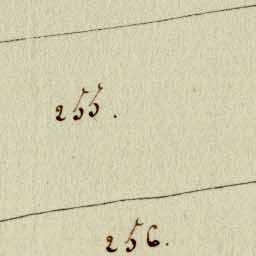 255.
256.